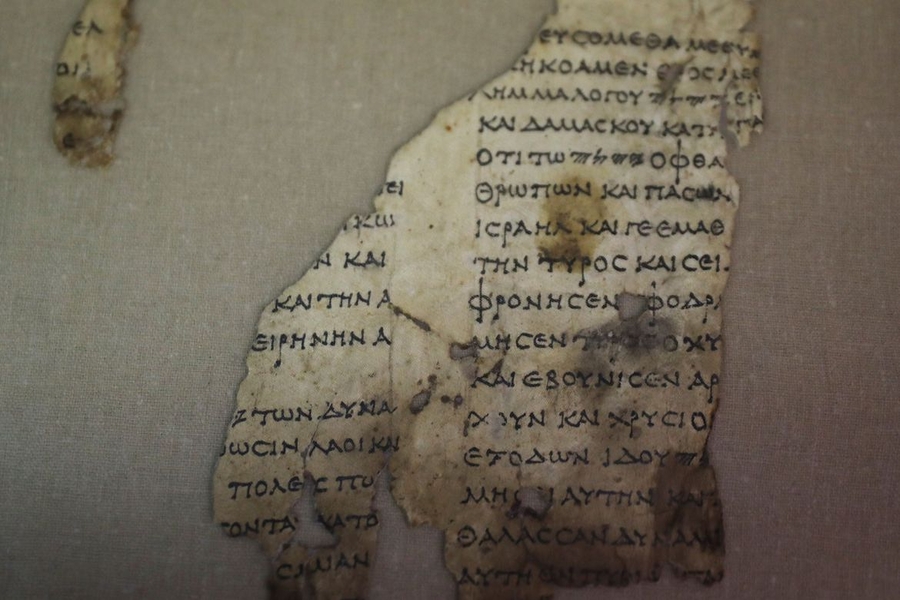 ΕΛ
ΕΙ
ΚΩΙ
Ν ΚΑΙ
ΚΑΙ ΤΗΝ Α
ΕΙΡΗΝΗΝ Α
ΤΩΝ ΔΥΝΑ
ΩϹΙΝ ΛΑΟΙ ΚΑΙ
ΠΟΛΕΙϹ ΠΟ
ΟΝΤΑ ΚΑΤΟ
ΜΙΑΝ
ΕΥϹΟΜΕΘΑ ΜΕΘ Υ
ΗΚΟΑΜΕΝ
ΛΗΜΜΑ ΛΟΓΟΥ 𐤉𐤄𐤅𐤄 ΕΝ
ΚΑΙ ΔΑΜΑϹΚΟΥ ΚΑΤΑ
ΟΤΙ ΤΩ 𐤉𐤄𐤅𐤄 ΟΦΘΑ
ΘΡΩΠΩΝ ΚΑΙ ΠΑϹΩΝ
ΙϹΡΑΗΛ ΚΑΙ ΓΕ ΕΜΑΘ
ΤΗΝ ΤΥΡΟϹ ΚΑΙ ϹΕΙ
ΦΡΟΝΗϹΕΝ ΦΟΔΡΑ
ΜΗϹΕΝ ΤΥΡΟϹ ΟΧΥ
ΚΑΙ ΕΒΟΥΝΙϹΕΝ ΑΡ
ΧΟΥΝ ΚΑΙ ΧΡΥϹΙΟ
ΕΞΟΔΩΝ ΙΔΟΥ
ΜΗ Ι ΑΥΤΗΝ ΚΑΙ
ΘΑΛΑϹϹΑΝ ΔΥΝΑΜΙ
ΑΥΤΗ ΕΝ ΠΥΡΙ